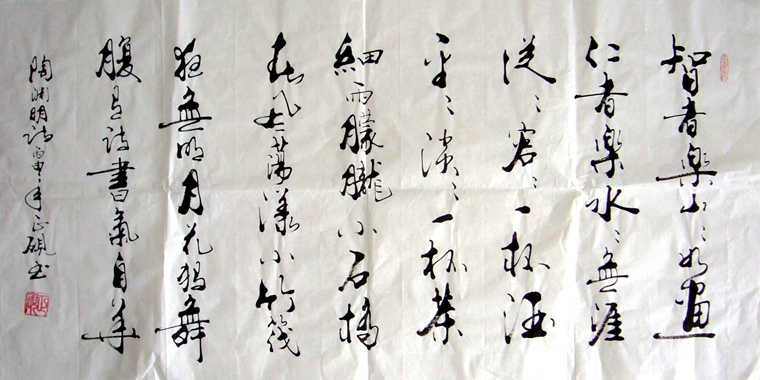 智者樂山〻如畫
仁者樂水〻無涯
從〻容〻一杯酒
平〻淡〻一杯茶
細雨朦朧小石橋
春風蕩漾小竹筏
夜無明月花獨舞
腹有詩書氣自華
陶淵明詩年正硯書